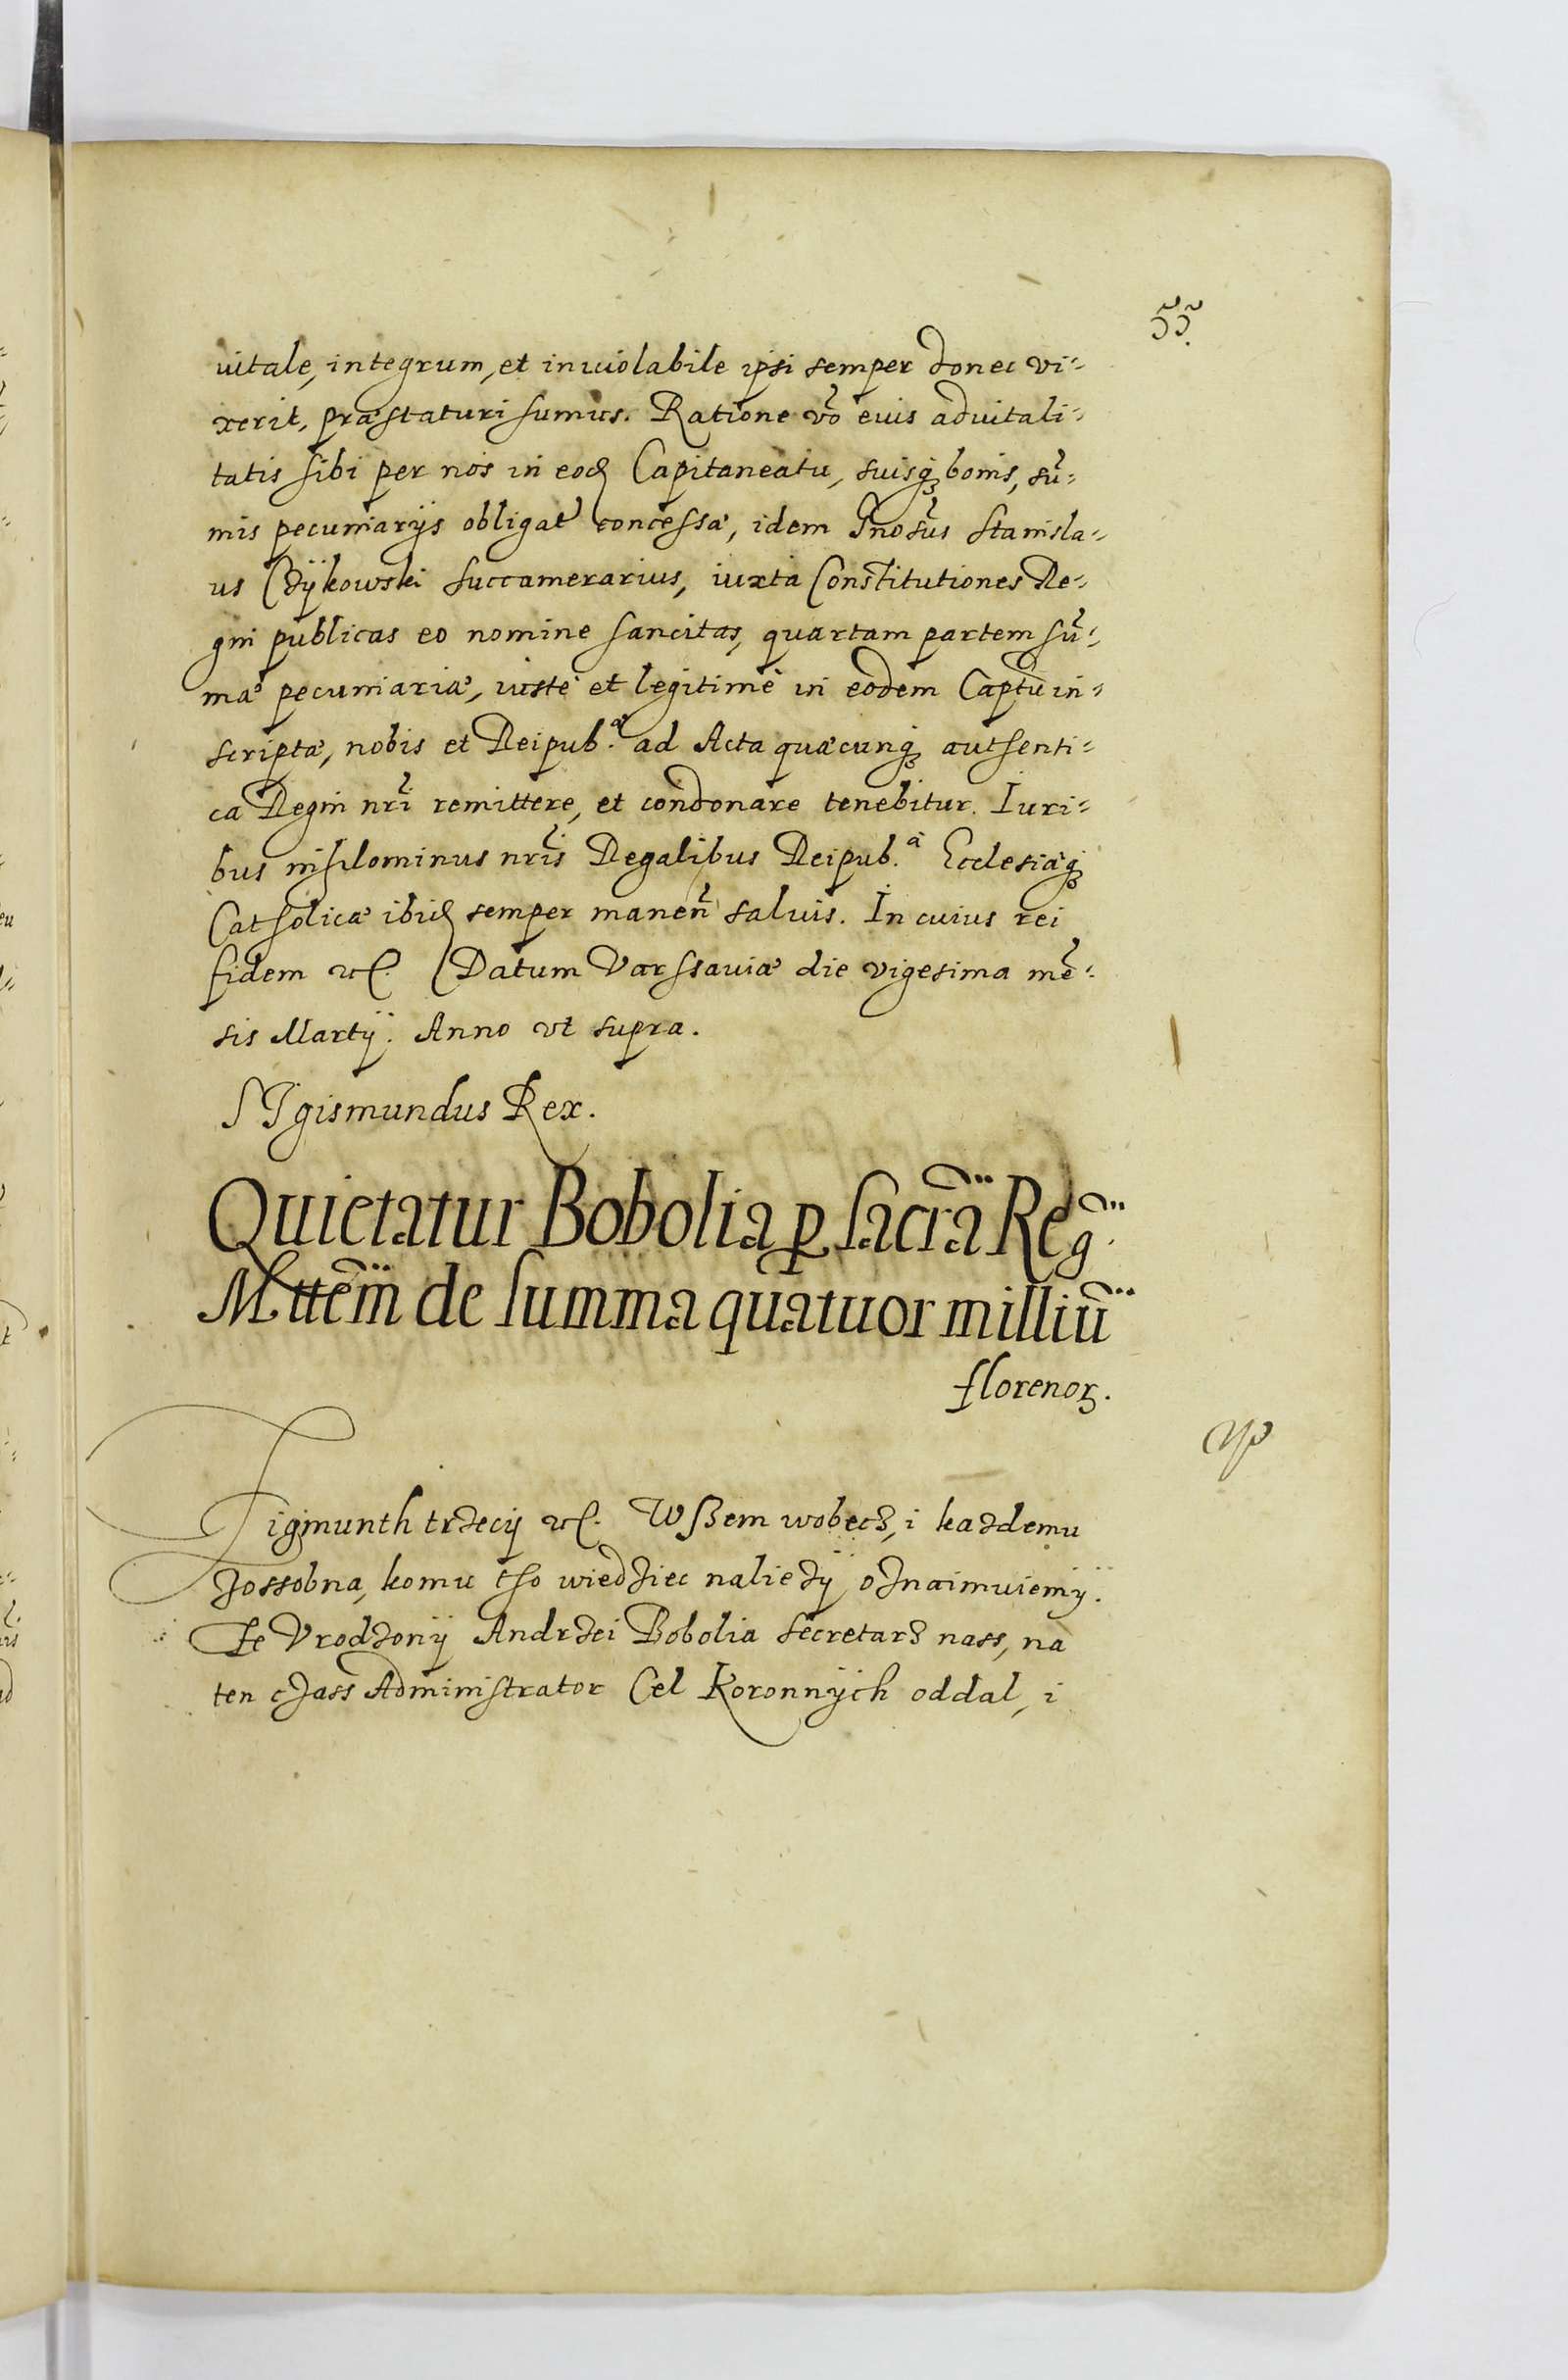 55.
uitale, integrum, et inuiolabile ipsi semper donec vi=
xerit, præstaturi sumus. Ratione vo᷃ eius aduitali=
tatis sibi per nos in eod Capitaneatu, suisq₃ bonis, sū=
mis pecuniarÿs obligat᷃ concessæ, idem Gnosus Stanisla=
us Czÿkowski Succamerarius, iuxta Constitutiones Re=
gni publicas eo nomine sancitas, quartam partem sū=
mæ pecuniariæ, iustè et legitimè in eodem Captu in=
scriptæ, nobis et Reipub.ᵃ ad Acta quæcunq₃ authenti=
ca Regni nri remittere, et condonare tenebitur. Iuri=
bus nihilominus nris Regalibus Reipub.ᵃ Ecclesiæq₃
Catholicæ ibid semper manen saluis. In cuius rei
fidem etc. Datum Varssauiæ die vigesima mē=
sis Martÿ. Anno vt supra.
SIgismundus Rex.
Quietatur Bobolia p sacrā Reg.
Mttem de summa quatuor milliū
florenoꝝ.
Zigmunth trzecÿ etc. Wßem wobecz, i kazdemu
zossobna, komu tho wiedziec naliezÿ oznaimuiemÿ.
Ze Vrodzonÿ Andrzei Bobolia secretarz nass, na
ten czass Administrator Cel Koronnÿch oddal, i